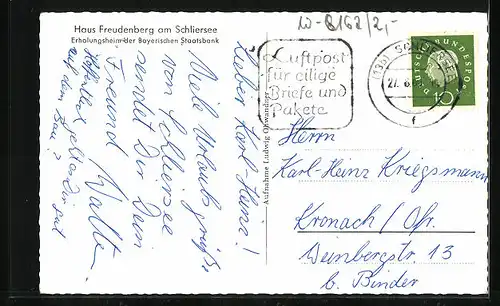 Haus Freudenberg am Schliersee
Erholungsheim der Bayerischen Staatsbank
W-8162/2,-
Lieber Karl-Heinz!
Viele Urlaubsgrüße
von Schliersee
sendet Dir Dein
Freund Walter
Hoffentlich geht es Dir gut
auf dem Bau?
Aufnahme Ludwig
Luftpost
für eilige
Briefe und
Pakete
(13b) SCHLIERSEE
27. 6.
f
DEUTSCHE BUNDESPOST
10
Herrn
Karl-Heinz Kriegsmann
Kronach / Ofr.
Weinbergstr. 13
b. Binder